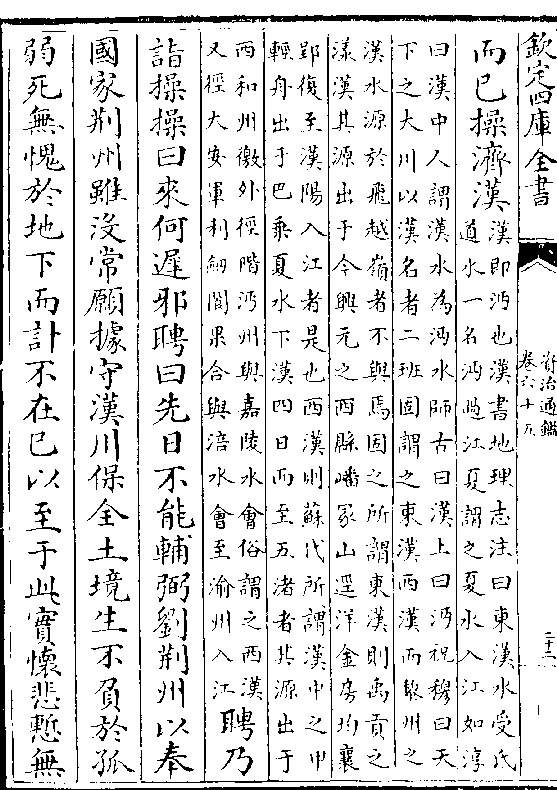 欽定四庫全書
資治通鑑
卷六十五
二十二
而已操濟漢
漢即沔也漢書地理志注曰東漢水受氐
道水一名沔過江夏謂之夏水入江如淳
曰漢中人謂漢水為沔水師古曰漢上曰沔祝穆曰天
下之大川以漢名者二班固謂之東漢西漢而黎州之
漢水源於飛越嶺者不與焉固之所謂東漢則禹貢之
漾漢其源出于今興元之西縣嶓冢山逕洋金房均襄
郢復至漢陽入江者是也西漢則蘇代所謂漢中之甲
輕舟出于巴乘夏水下漢四日而至五渚者其源出于
西和州徼外徑階沔州與嘉陵水會俗謂之西漢
又徑大安軍利劒閬果合與涪水會至渝州入江
聘乃
詣操操曰來何遲邪聘曰先日不能輔弼劉荆州以奉
國家荆州雖沒常願據守漢川保全土境生不負於孤
弱死無愧於地下而計不在已以至于此實懷悲慙無